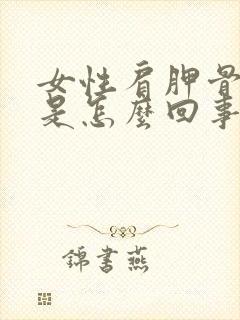 女性肩胛骨
是怎麼回事
錦書燕